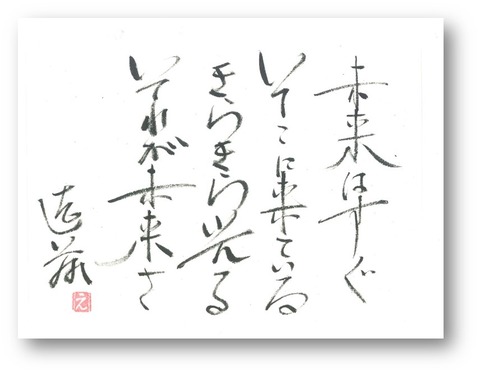 未来はすぐ
そこに来ている
きらきら光る
それが未来さ
え